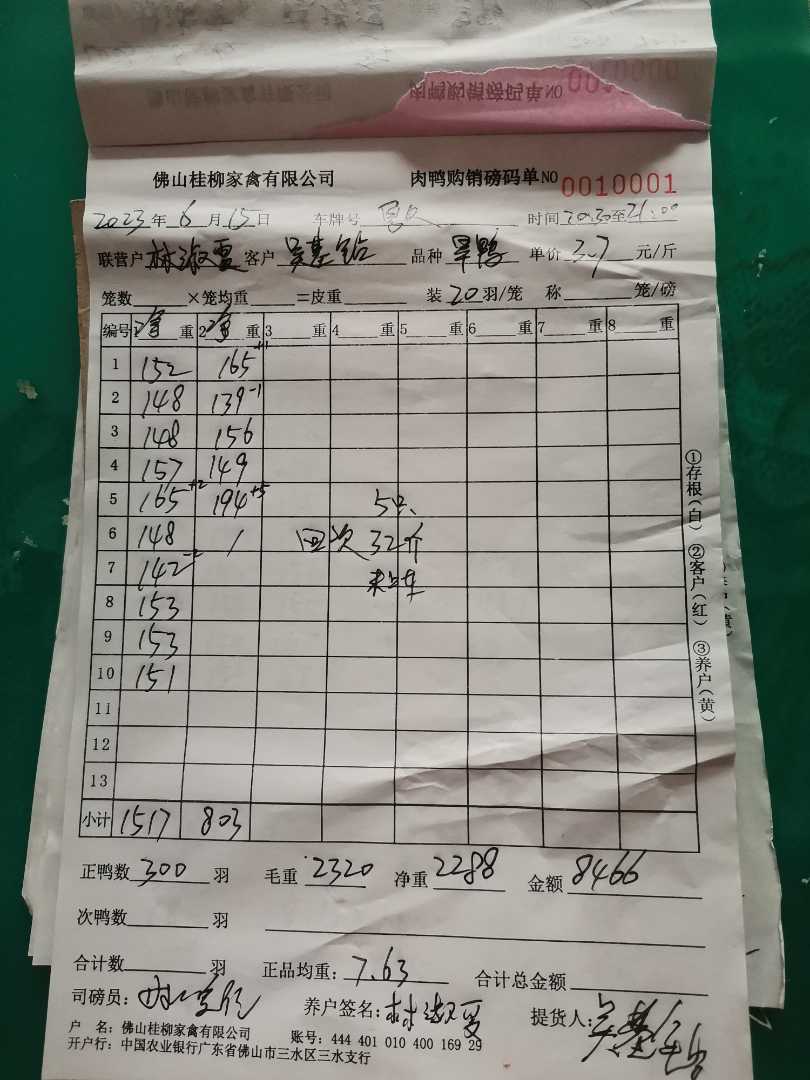 肉鸭购销磅码单NO 0010000
佛山桂柳家禽有限公司 肉鸭购销磅码单NO 0010001
2023年6月15日 车牌号 时间20:30至21:00
联营户林淑雯 客户吴基钻 品种旱鸭 单价3.7元/斤
笼数 ×笼均重 =皮重 装20羽/笼 称 笼/磅
编号 1净重 2净重 3 重 4 重 5 重 6 重 7 重 8 重
1 152 165+1
2 148 139-1
3 148 156
4 157 149
5 165+2 194+5 5只
6 148 / 回次32斤
7 142-2 未上车
8 153
9 153
10 151
11
12
13
小计 1517 803
①存根(白) ②客户(红) ③养户(黄)
正鸭数300羽 毛重2320 净重2288 金额8466
次鸭数 羽
合计数 羽 正品均重:7.63 合计总金额
司磅员: 养户签名:林淑雯 提货人:吴基钻
户 名:佛山桂柳家禽有限公司 账号:444 401 010 400 169 29
开户行:中国农业银行广东省佛山市三水区三水支行